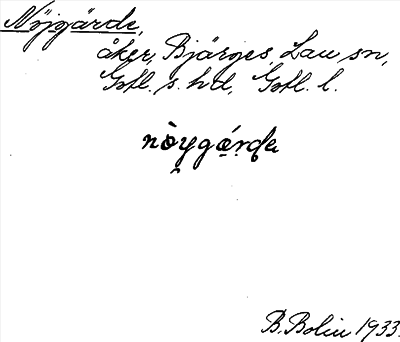 Nöjgärde,
åker, Bjärges, Lau sn,
Gotl. s. hd, Gotl. l.
nòygǽrda
B. Bolin 1933.